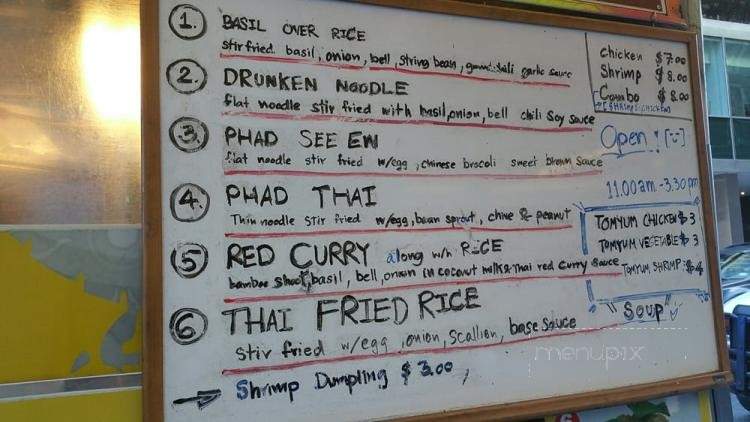 1. BASIL OVER RICE
stir fried basil, onion, bell, string bean, garlic sauce
2. DRUNKEN NOODLE
flat noodle stir fried with basil, onion, bell chili soy sauce
3. PHAD SEE EW
flat noodle stir fried w/egg, chinese brocoli sweet brown sauce
4. PHAD THAI
Thin noodle stir fried w/egg, bean sprout, chive & peanut
5 RED CURRY along w/h RICE
bamboo shoot, basil, bell, onion in coconut milk & thai red curry sauce
6 THAI FRIED RICE
stir fried w/egg, onion, scallion, base sauce
→ Shrimp Dumpling $3.00
Chicken $7.00
Shrimp $8.00
Combo $8.00
(SHRIMP&CHICKEN)
Open!
11.00am - 3.30pm
TOMYUM CHICKEN $3
TOMYUM VEGETABLE $3
TOMYUM SHRIMP: $4
SOUP
menupix